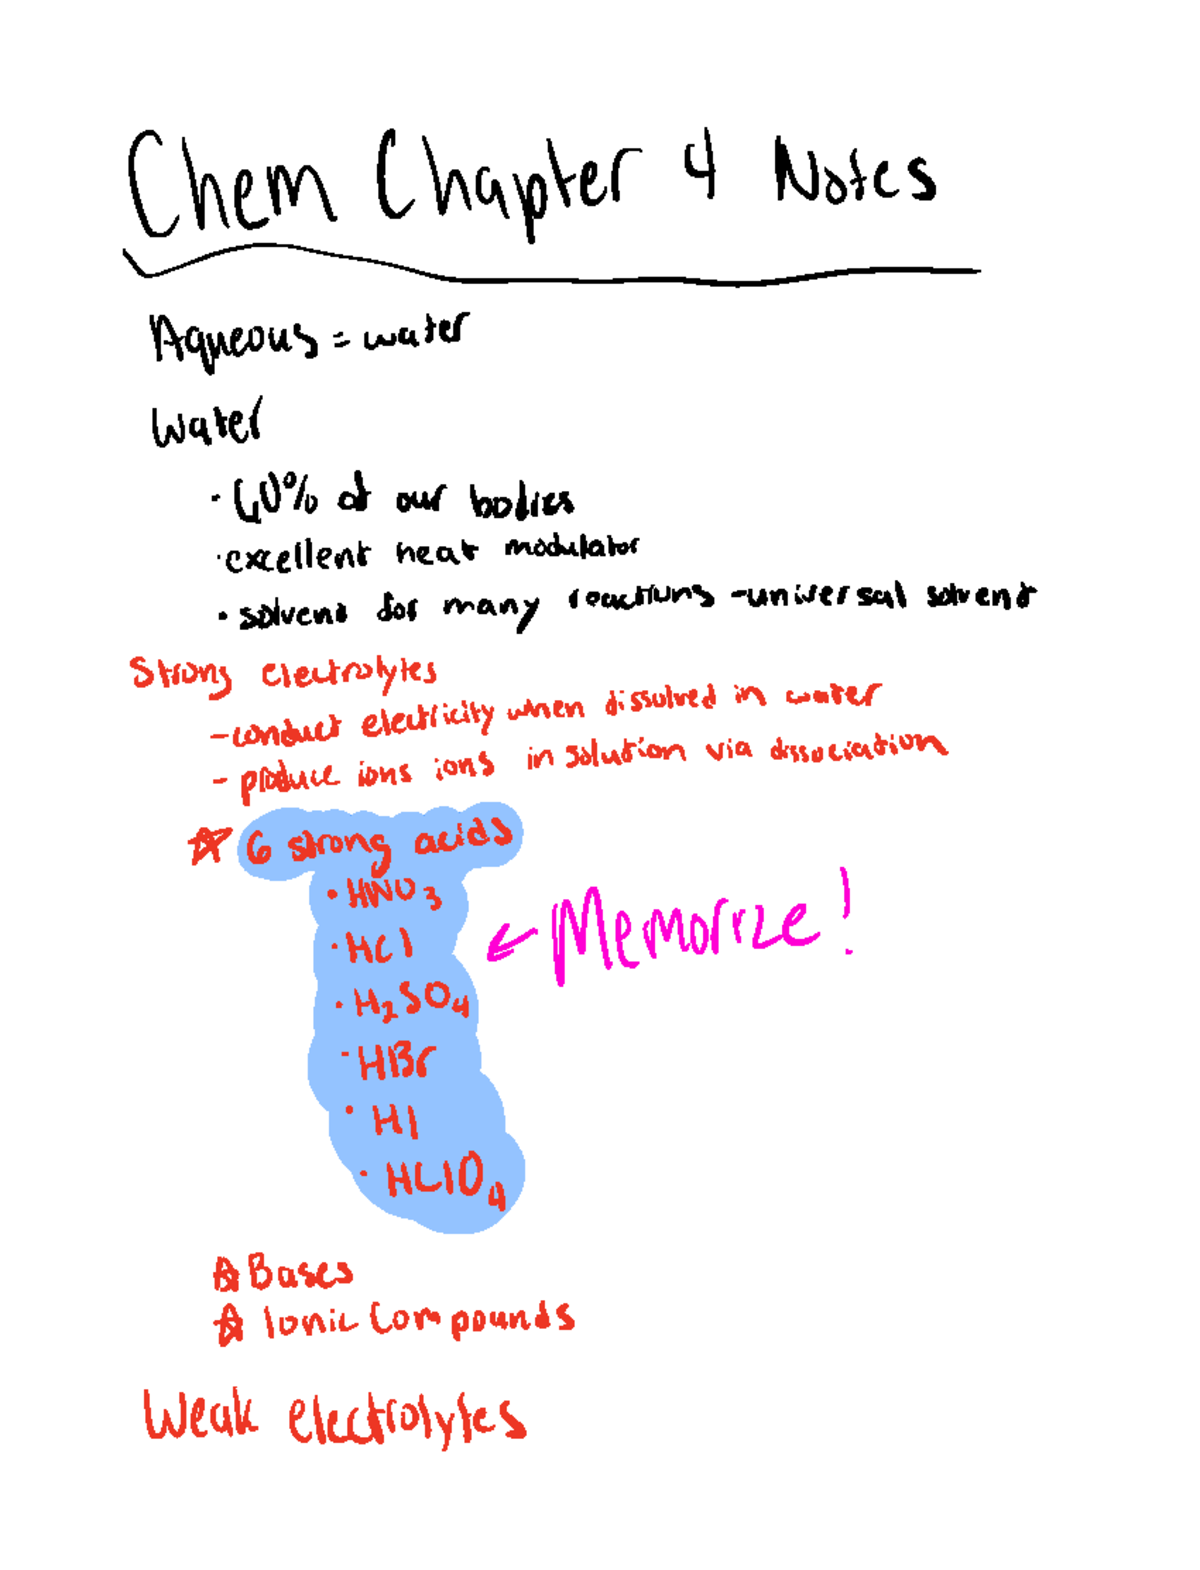 Chem Chapter 4 Notes
Aqueous = water
Water
• 60% of our bodies
• excellent heat modulator
• solvent for many reactions - universal solvent
Strong electrolytes
- conduct electricity when dissolved in water
- produce ions ions in solution via dissociation
☆ 6 strong acids
• HNO₃
• HCl
← Memorize!
• H₂SO₄
• HBr
• HI
• HClO₄
☆ Bases
☆ Ionic Compounds
Weak electrolytes